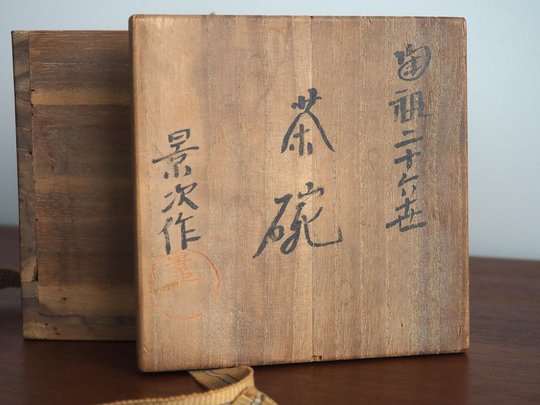 陶祖二十六世
茶碗
景次作